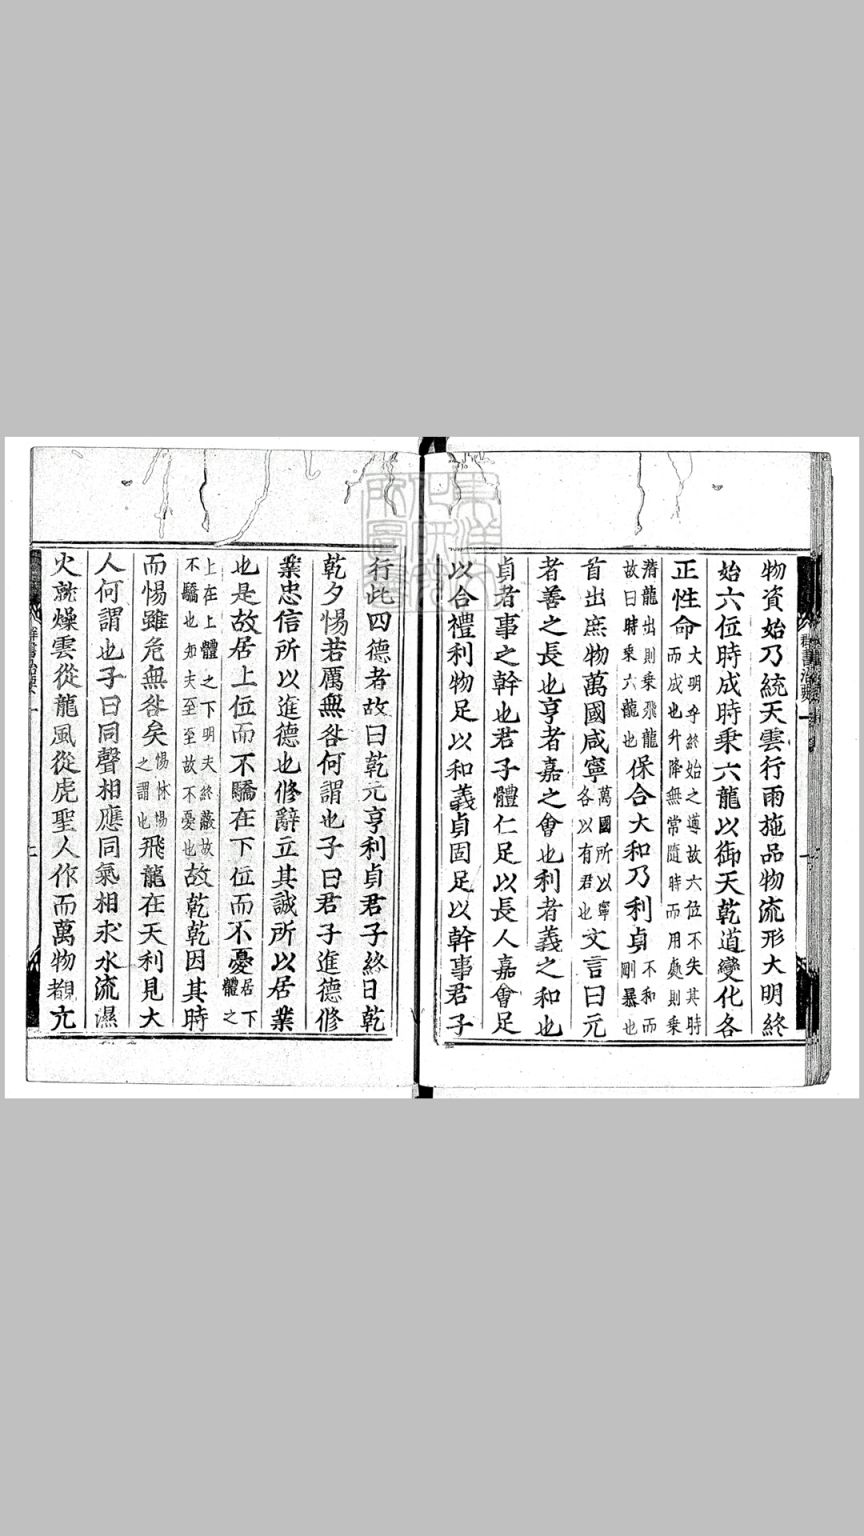 物資始乃統天雲行雨施品物流形大明終
始六位時成時乘六龍以御天乾道變化各
正性命大明乎終始之道故六位不失其時而成也升降無常隨時而用處則乘
潛龍出則乘飛龍故曰時乘六龍也保合大和乃利貞不和而剛暴也
首出庶物萬國咸寧萬國所以寧各以有君也文言曰元
者善之長也亨者嘉之會也利者義之和也
貞者事之幹也君子體仁足以長人嘉會足
以合禮利物足以和義貞固足以幹事君子
行此四德者故曰乾元亨利貞君子終日乾
乾夕惕若厲無咎何謂也子曰君子進德修
業忠信所以進德也修辭立其誠所以居業
也是故居上位而不驕在下位而不憂居下體之
上在上體之下明夫終敝故不驕也知夫至至故不憂也故乾乾因其時
而惕雖危無咎矣惕怵惕之謂也飛龍在天利見大
人何謂也子曰同聲相應同氣相求水流濕
火就燥雲從龍風從虎聖人作而萬物覩亢